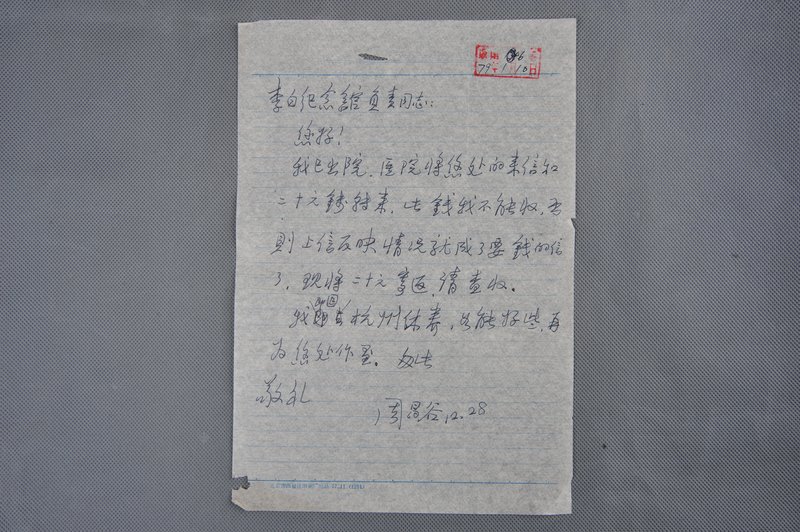 79 1 10
李白纪念馆负责同志：
您好！
我已出院，医院将您处的来信和
二十元钱转来，此钱我不能收，否
则上信反映情况就成了要钱的信
了，现将二十元奉返，请查收。
我 杭州休养，如能好些，再
为您处作画。 匆此
敬礼
周昌谷 12.28